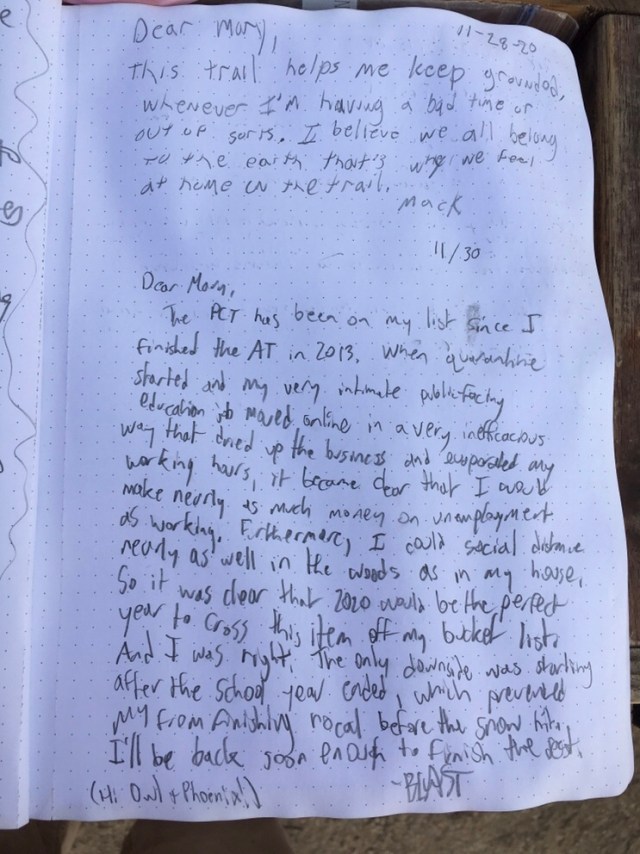 11-28-20
Dear Mory,
This trail helps me keep grounded,
whenever I'm having a bad time or
out of sorts. I believe we all belong
to the earth that's why we feel
at home on the trail.
Mack
11/30
Dear Mory,
The PCT has been on my list since I
finished the AT in 2013. When quarantine
started and my very intimate public-facing
education job moved online in a very inefficacious
way that dried up the business and evaporated my
working hours, it became clear that I would
make nearly as much money on unemployment
as working. Furthermore, I could social distance
nearly as well in the woods as in my house.
So it was clear that 2020 would be the perfect
year to cross this item off my bucket list.
And I was right. The only downside was starting
after the school year ended, which prevented
my from finishing nocal before the snow hits.
I'll be back soon enough to finish the rest.
-BLAST
(Hi Owl + Phoenix!)